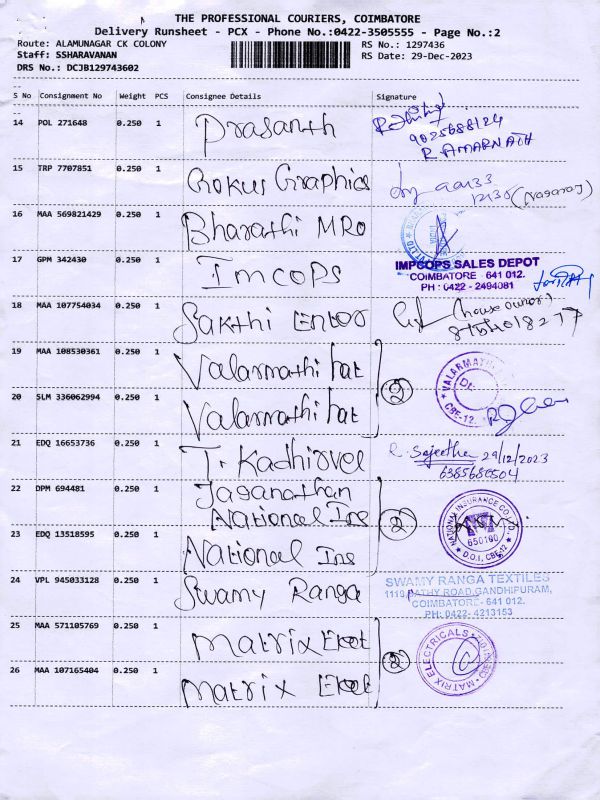 THE PROFESSIONAL COURIERS, COIMBATORE
Delivery Runsheet - PCX - Phone No.:0422-3505555 - Page No.:2
Route: ALAMUNAGAR CK COLONY
RS No.: 1297436
Staff: SSHARAVANAN
RS Date: 29-Dec-2023
DRS No.: DCJB129743602
S No Consignment No Weight PCS Consignee Details Signature
14 POL 271648 0.250 1 Prasanth
9025688124
R AMARNATH
15 TRP 7707851 0.250 1 Gokul Graphics
(Nagaraj)
16 MAA 569821429 0.250 1 Bharathi MRO
17 GPM 342430 0.250 1 Imcops
IMPCOPS SALES DEPOT
COIMBATORE 641 012.
PH : 0422 - 2494081
18 MAA 107754034 0.250 1 Sakthi Enter
(house owner)
19 MAA 108530361 0.250 1 Valarmathi hat
20 SLM 336062994 0.250 1 Valarmathi hat
2
CBE-12.
21 EDQ 16653736 0.250 1 T. Kadhirvel
Sajeetha 29/12/2023
22 DPM 694481 0.250 1 Jaganathan
National Ins
23 EDQ 13518595 0.250 1 National Ins
2
NATIONAL INSURANCE CO. LTD
650100
D.O.I, CBE-12
24 VPL 945033128 0.250 1 Swamy Ranga
SWAMY RANGA TEXTILES
ROAD, GANDHIPURAM,
COIMBATORE - 641 012.
PH: 0422- 4213153
25 MAA 571105769 0.250 1 Matrix Elect
26 MAA 107165404 0.250 1 Matrix Elect
2
MATRIX ELECTRICALS